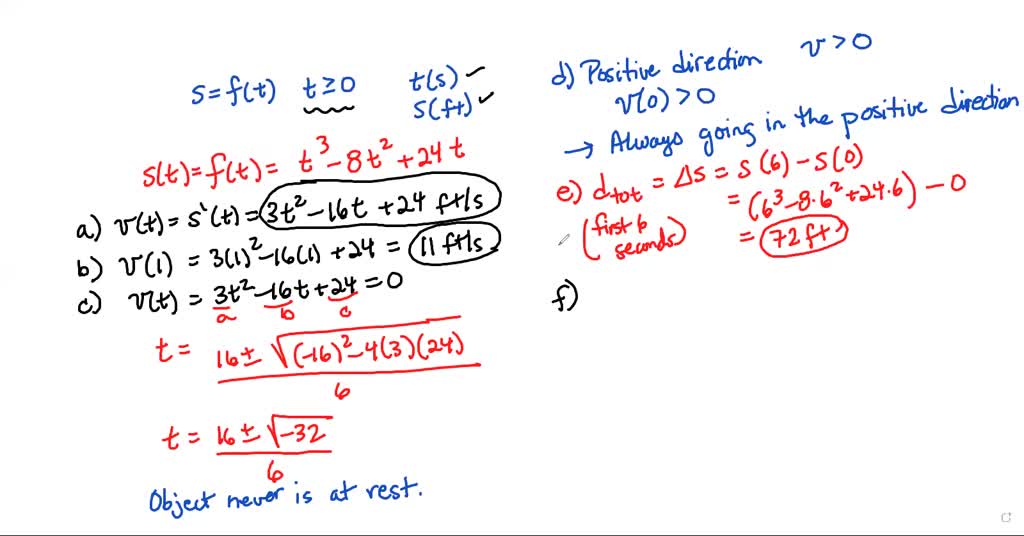 s = f(t) t ≥ 0 t(s) ✓
s(ft) ✓
s(t) = f(t) = t³ - 8t² + 24t
a) v(t) = s'(t) = 3t² - 16t + 24 ft/s
b) v(1) = 3(1)² - 16(1) + 24 = 11 ft/s
c) v(t) = 3t² - 16t + 24 = 0
a b c
t = 16 ± √(-16)² - 4(3)(24)
6
t = 16 ± √-32
6
Object never is at rest.
d) Positive direction v > 0
v(0) > 0
→ Always going in the positive direction
e) dtot = Δs = s(6) - s(0)
(first 6 seconds)
= (6³ - 8·6² + 24·6) - 0
= 72 ft
f)